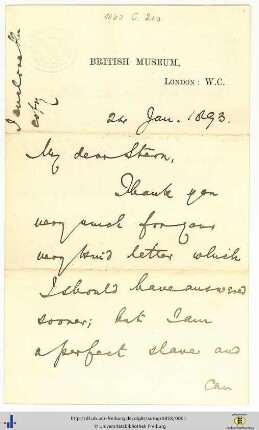 1960 C. 210
I enclose the
copy
BRITISH MUSEUM,
LONDON: W.C.
24 Jan. 1893.
My dear Stern,
Thank you
very much for your
very kind letter which
I should have answered
sooner; but I am
a perfect slave and
can
http://dl.ub.uni-freiburg.de/diglit/autogr1858/0001
© Universitätsbibliothek Freiburg